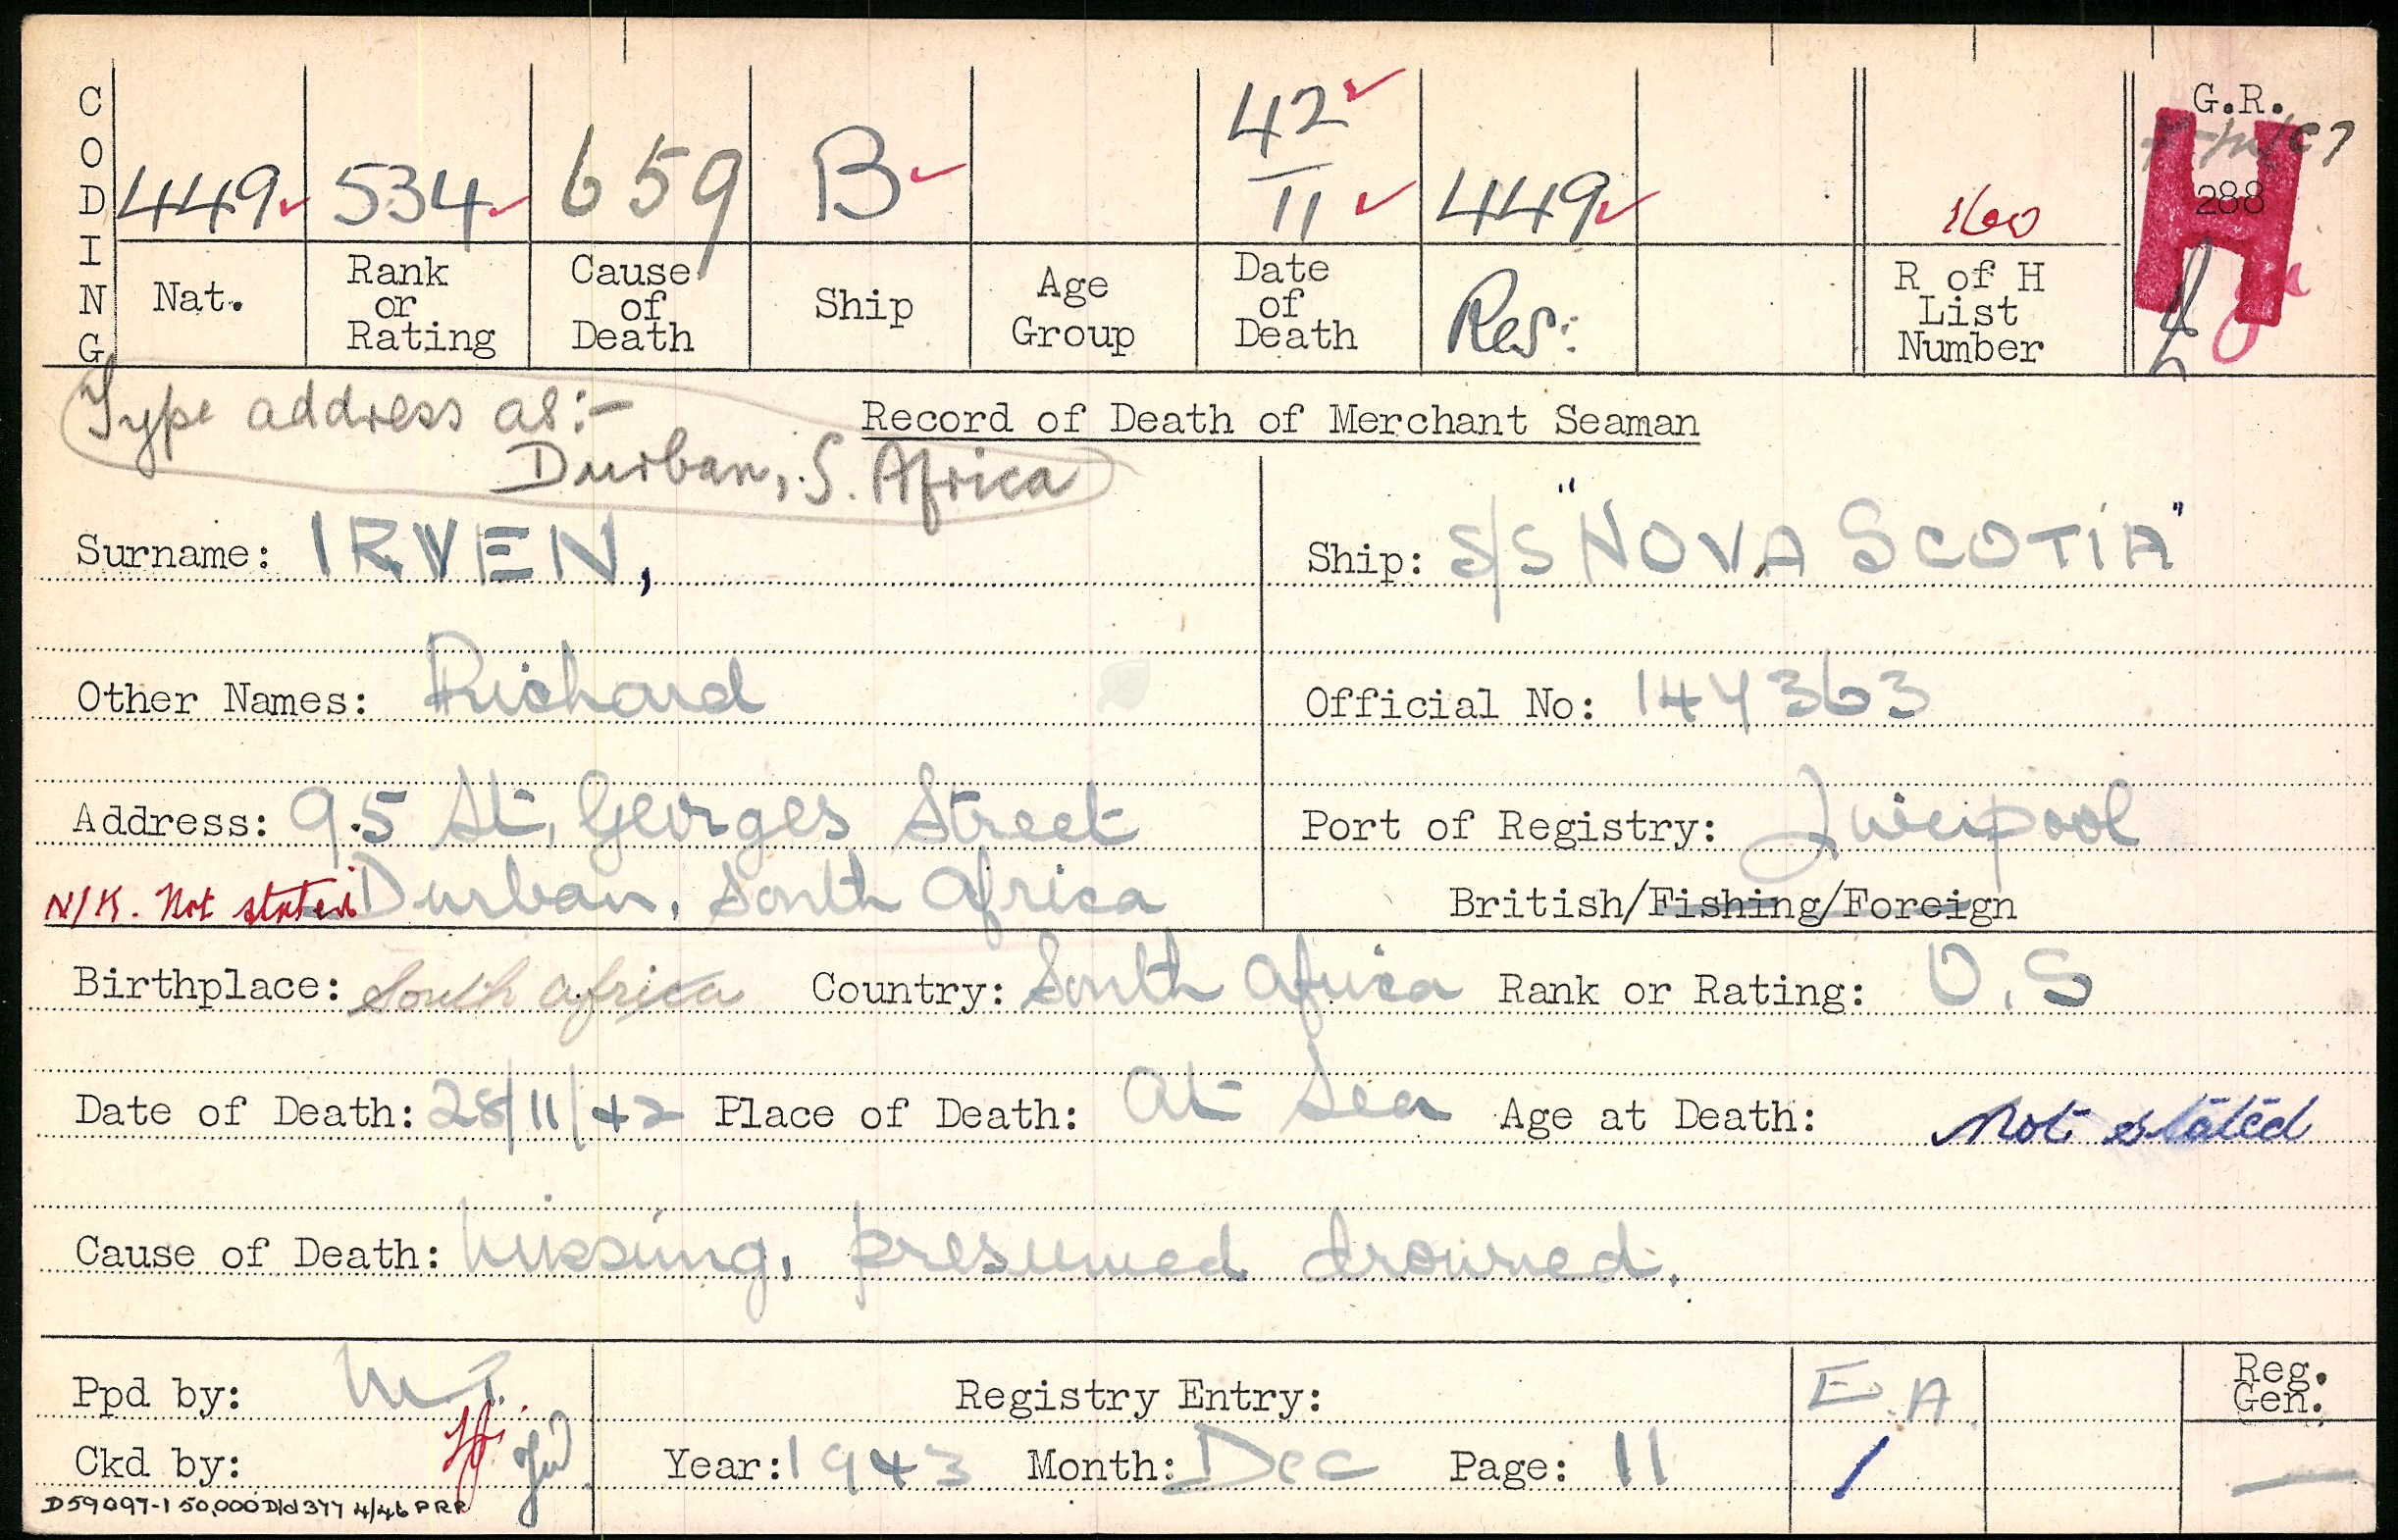 CODING
449 534 659 B 42 11 449 160 G.R. 288 H
Nat. Rank or Rating Cause of Death Ship Age Group Date of Death Res: R of H List Number
Type address as:-
Durban, S. Africa
Record of Death of Merchant Seaman
Surname: IRVEN,
Ship: S/S "NOVA SCOTIA"
Other Names: Richard
Official No: 147363
Address: 95 St. Georges Street
Port of Registry: Liverpool
N/K. Not stated Durban, South Africa
British/Fishing/Foreign
Birthplace: South Africa Country: South Africa Rank or Rating: O.S
Date of Death: 28/11/42 Place of Death: At Sea Age at Death: Not stated
Cause of Death: Missing, presumed drowned.
Ppd by: Registry Entry: E.A. Reg. Gen.
Ckd by: Year: 1943 Month: Dec Page: 11 /
D59097-1 50,000 D/d 377 4/46 PRR